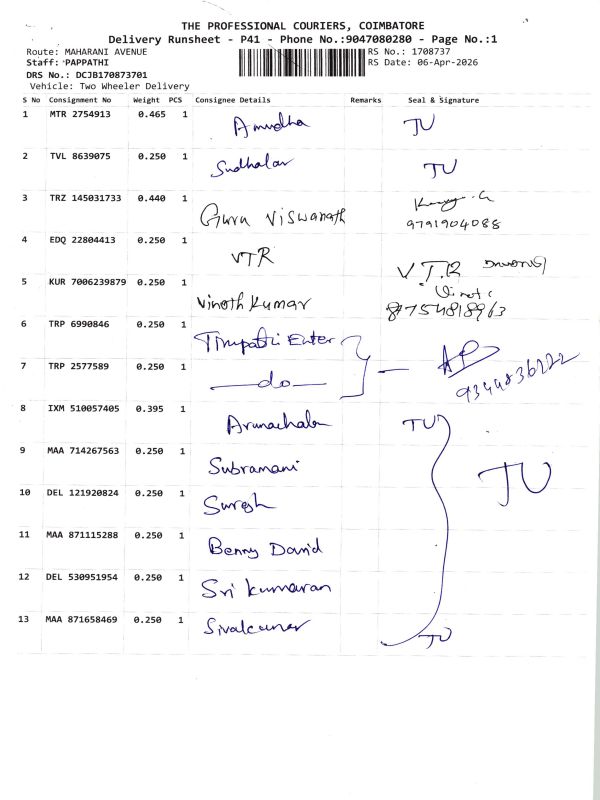 THE PROFESSIONAL COURIERS, COIMBATORE
Delivery Runsheet - P41 - Phone No.:9047080280 - Page No.:1
Route: MAHARANI AVENUE RS No.: 1708737
Staff: PAPPATHI RS Date: 06-Apr-2026
DRS No.: DCJB170873701
Vehicle: Two Wheeler Delivery
S No Consignment No Weight PCS Consignee Details Remarks Seal & Signature
1 MTR 2754913 0.465 1 Amudha TU
2 TVL 8639075 0.250 1 Sudhalar TU
3 TRZ 145031733 0.440 1 Guru Viswanath
9791904088
4 EDQ 22804413 0.250 1 VTR V.T.R
5 KUR 7006239879 0.250 1 Vinoth Kumar
8754818963
6 TRP 6990846 0.250 1 Tirupathi Enter
7 TRP 2577589 0.250 1 —do— 9344836222
8 IXM 510057405 0.395 1 Arunachalam TU
9 MAA 714267563 0.250 1 Subramani TU
10 DEL 121920824 0.250 1 Suresh
11 MAA 871115288 0.250 1 Benny David
12 DEL 530951954 0.250 1 Sri kumaran
13 MAA 871658469 0.250 1 Sivakumar TU